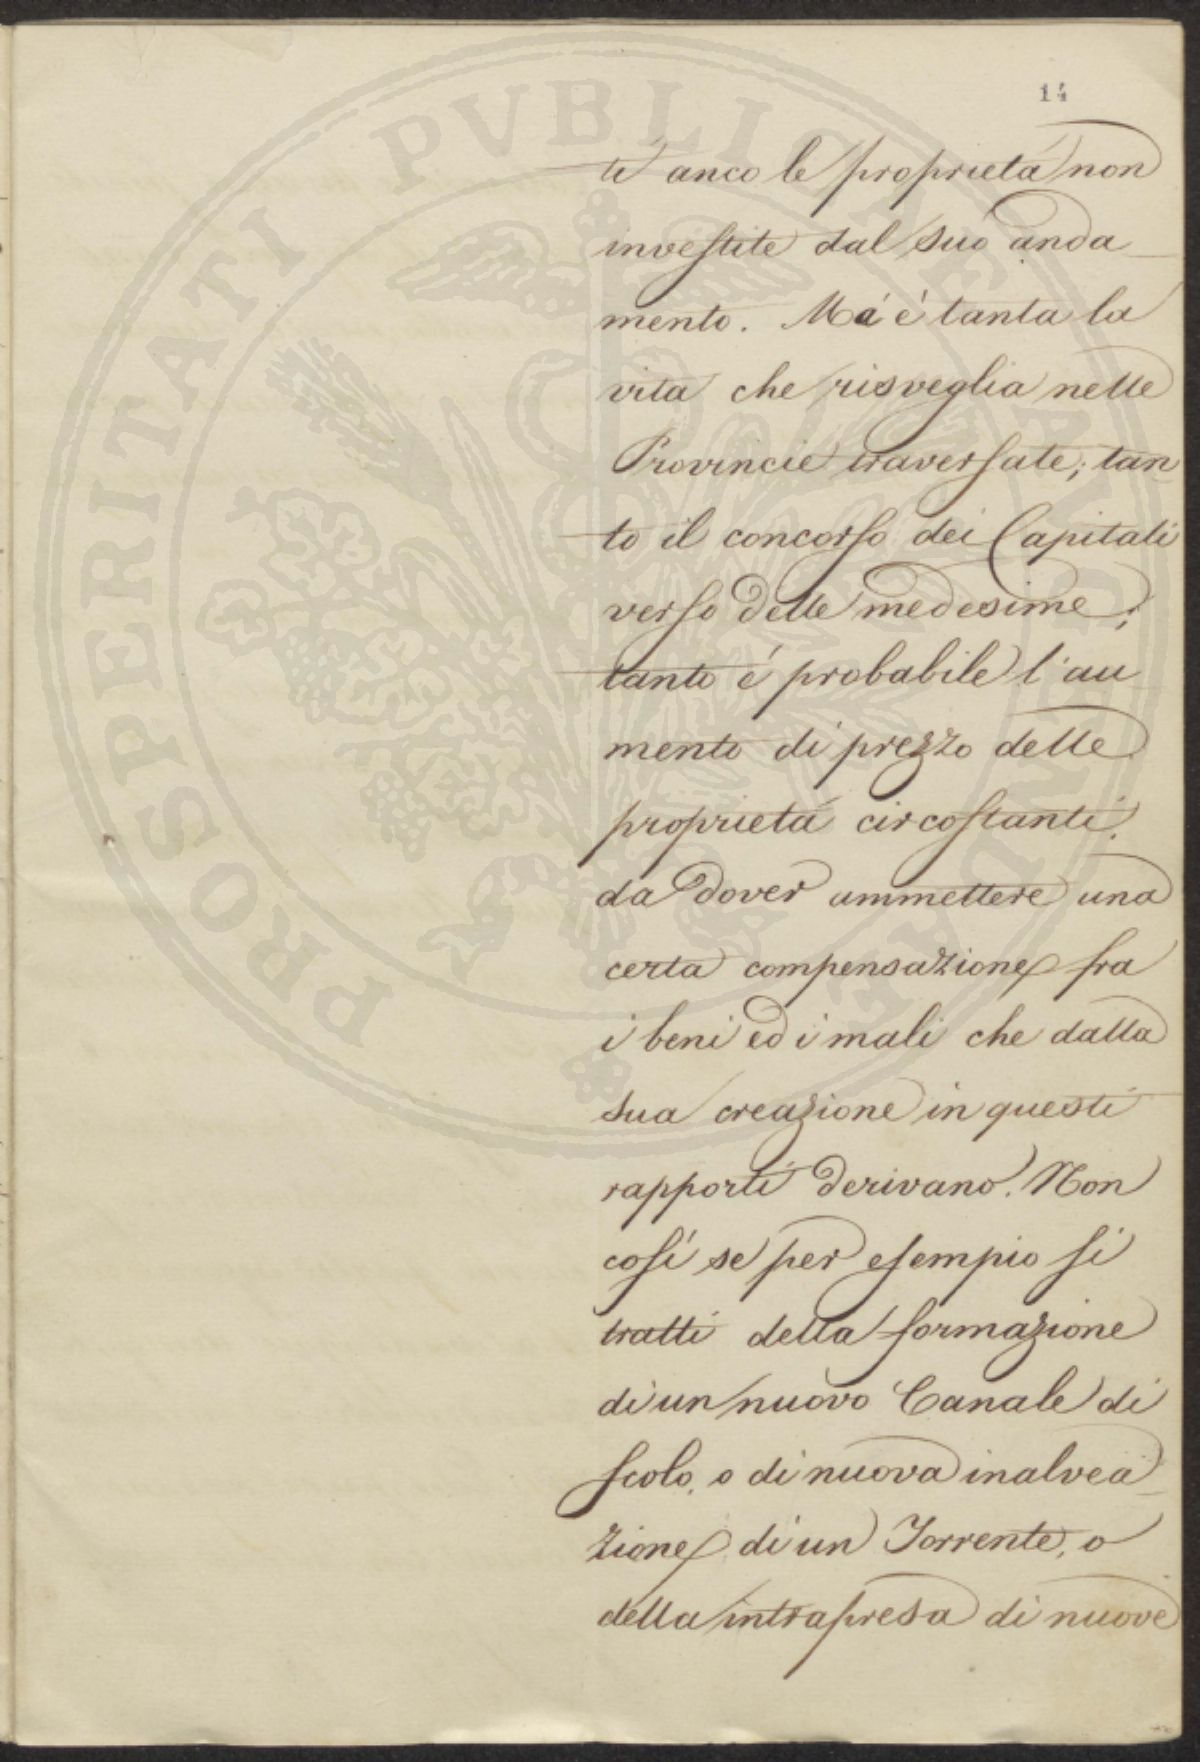 14
ti anco le proprietá non
investite dal suo anda
mento. Má é tanta la
vita che risveglia nelle
Provincie traversate; tan
to il concorso dei Capitali
verso delle medesime;
tanto é probabile l'au
mento di prezzo delle
proprietá circostanti.
da dover ammettere una
certa compensazione fra
i beni ed i mali che dalla
sua creazione in questi
rapporti derivano. Non
cosí se per esempio si
tratti della formazione
di un nuovo Canale di
scolo, o di nuova inalvea
zione di un Torrente, o
della intrapresa di nuove
PROSPERITATI PVBLICAE AVGENDAE